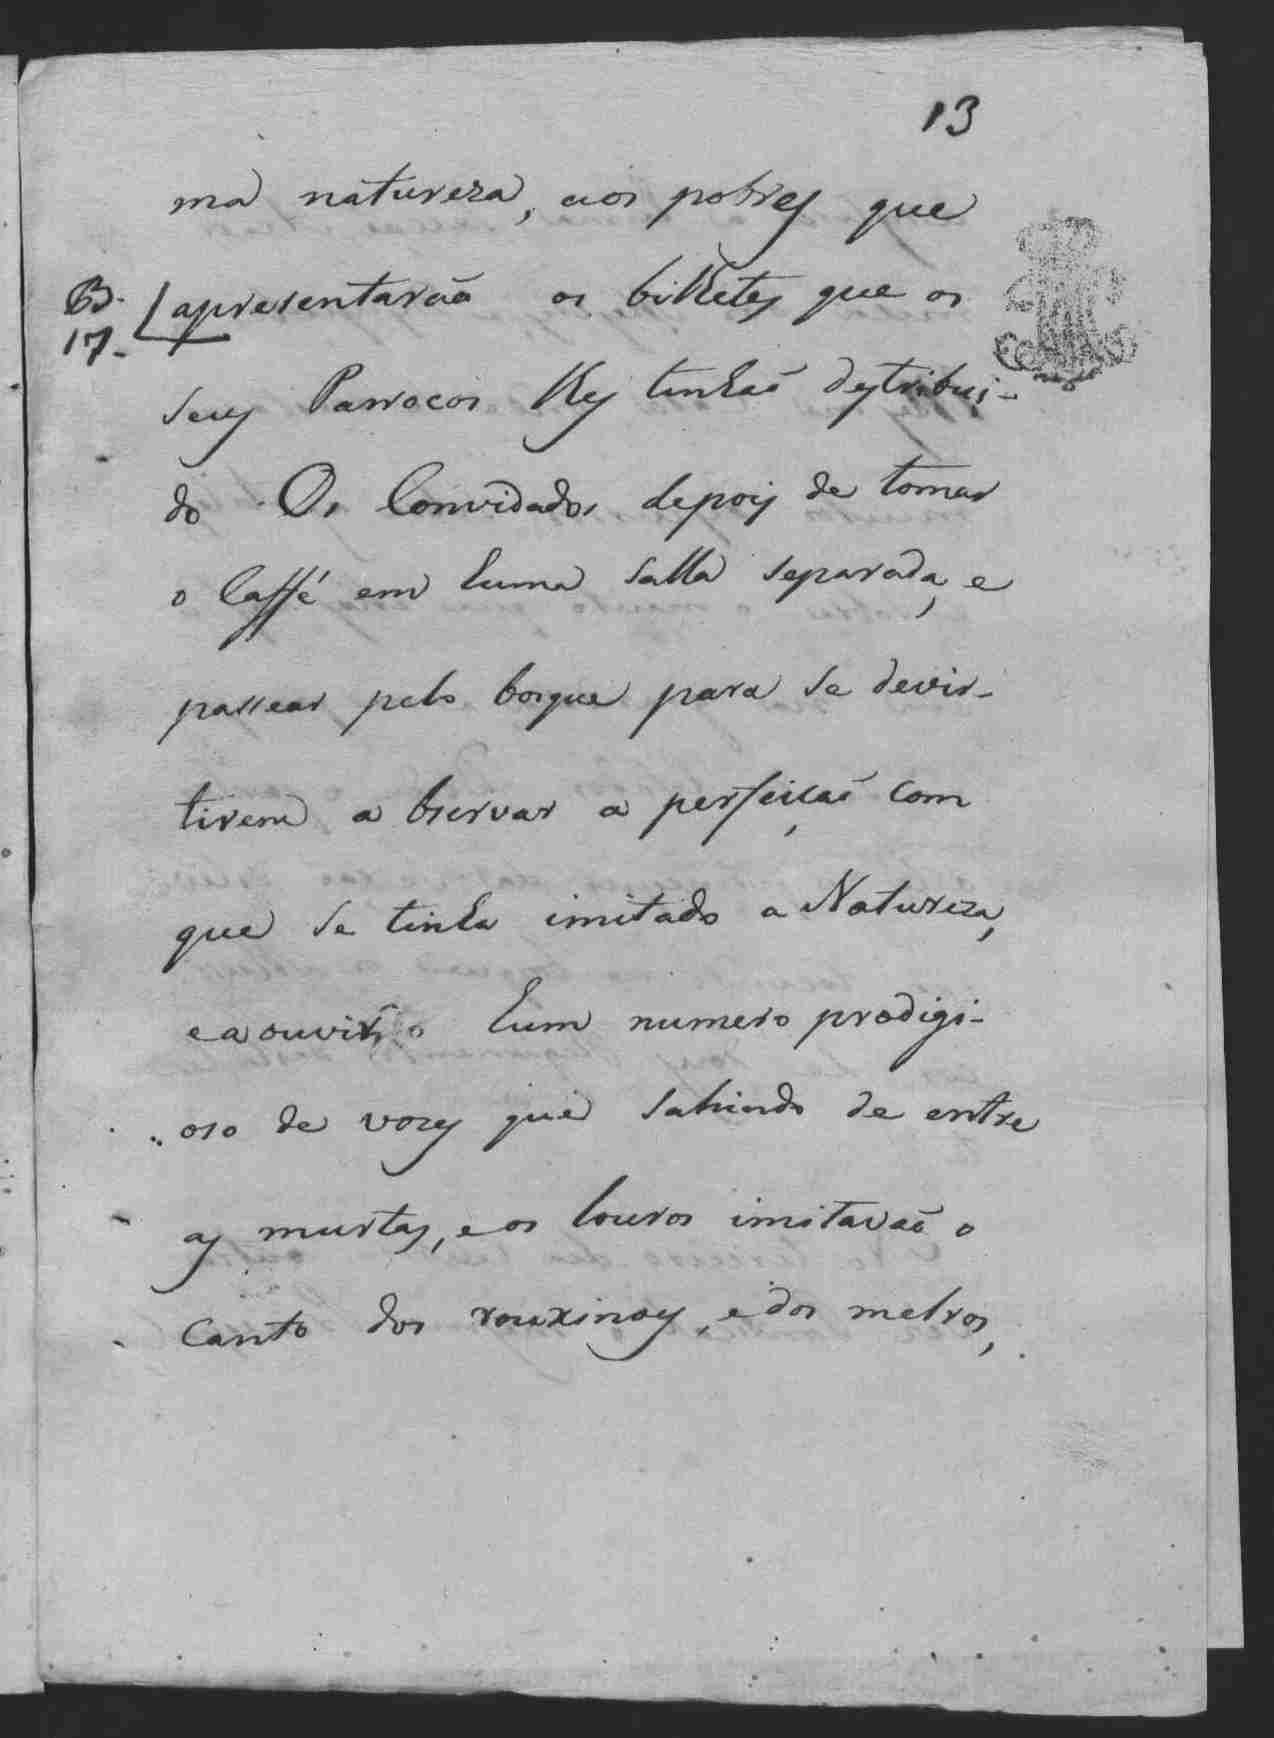 13
ma natureza, aos pobres que
B. 17. apresentaraõ os bilhetes que os
seus Parrocos lhes tinhaõ destribui-
do. Os Convidados depois de tomar
o Caffé em huma salla separada, e
passear pelo bosque para se devir-
tirem a observar a perfeiçaõ com
que se tinha imitado a Natureza,
e a ouvir hum numero prodigi-
oso de vozes que sahindo de entre
as murtas, e os louros imitavaõ o
Canto dos rouxinoes, e dos melros,